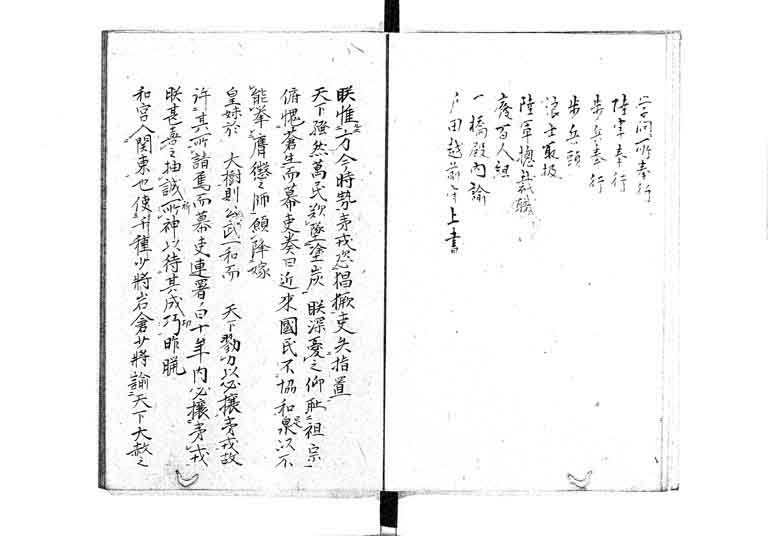 学問所奉行
陸軍奉行
歩兵奉行
歩兵頭
浪士取扱
陸軍総裁職
廃百人組
一橋殿内諭
戸田越前守上書
朕惟方今時勢夷戎恣猖獗吏失指置
天下騒然萬民欲墜塗炭朕深憂之仰耻祖宗
俯愧蒼生而幕吏奏曰近来國民不協和是以不
能挙膺懲之師願降嫁
皇妹於 大樹則公武一和而 天下戮力以必攘夷戎故
許其所請焉而幕吏連署曰十年内必攘夷戎
朕甚喜之抽誠祈神以待其成功昨臘
和宮入関東也使千種少将岩倉少将諭天下大赦之